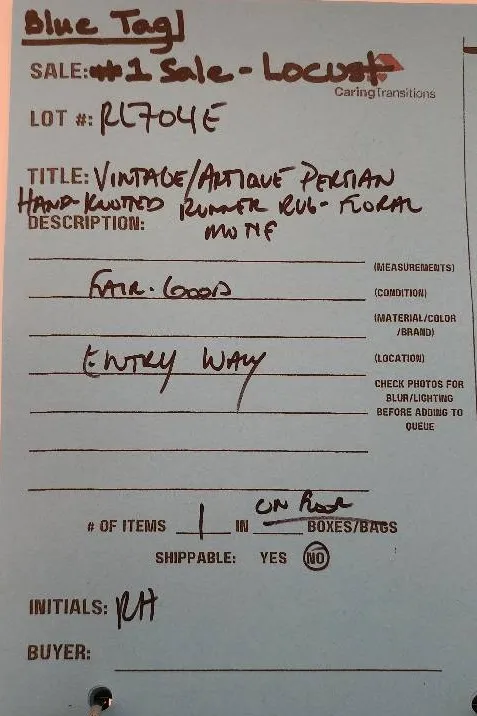 Blue Tag
SALE: #1 Sale - Locust
CaringTransitions
LOT #: RL704E
TITLE: VINTAGE/ANTIQUE PERSIAN
HAND-KNOTTED RUNNER RUG- FLORAL
DESCRIPTION: MOTIF
(MEASUREMENTS)
FAIR-GOOD (CONDITION)
(MATERIAL/COLOR
/BRAND)
ENTRY WAY (LOCATION)
CHECK PHOTOS FOR
BLUR/LIGHTING
BEFORE ADDING TO
QUEUE
ON FLOOR
# OF ITEMS 1 IN BOXES/BAGS
SHIPPABLE: YES NO
INITIALS: RH
BUYER: